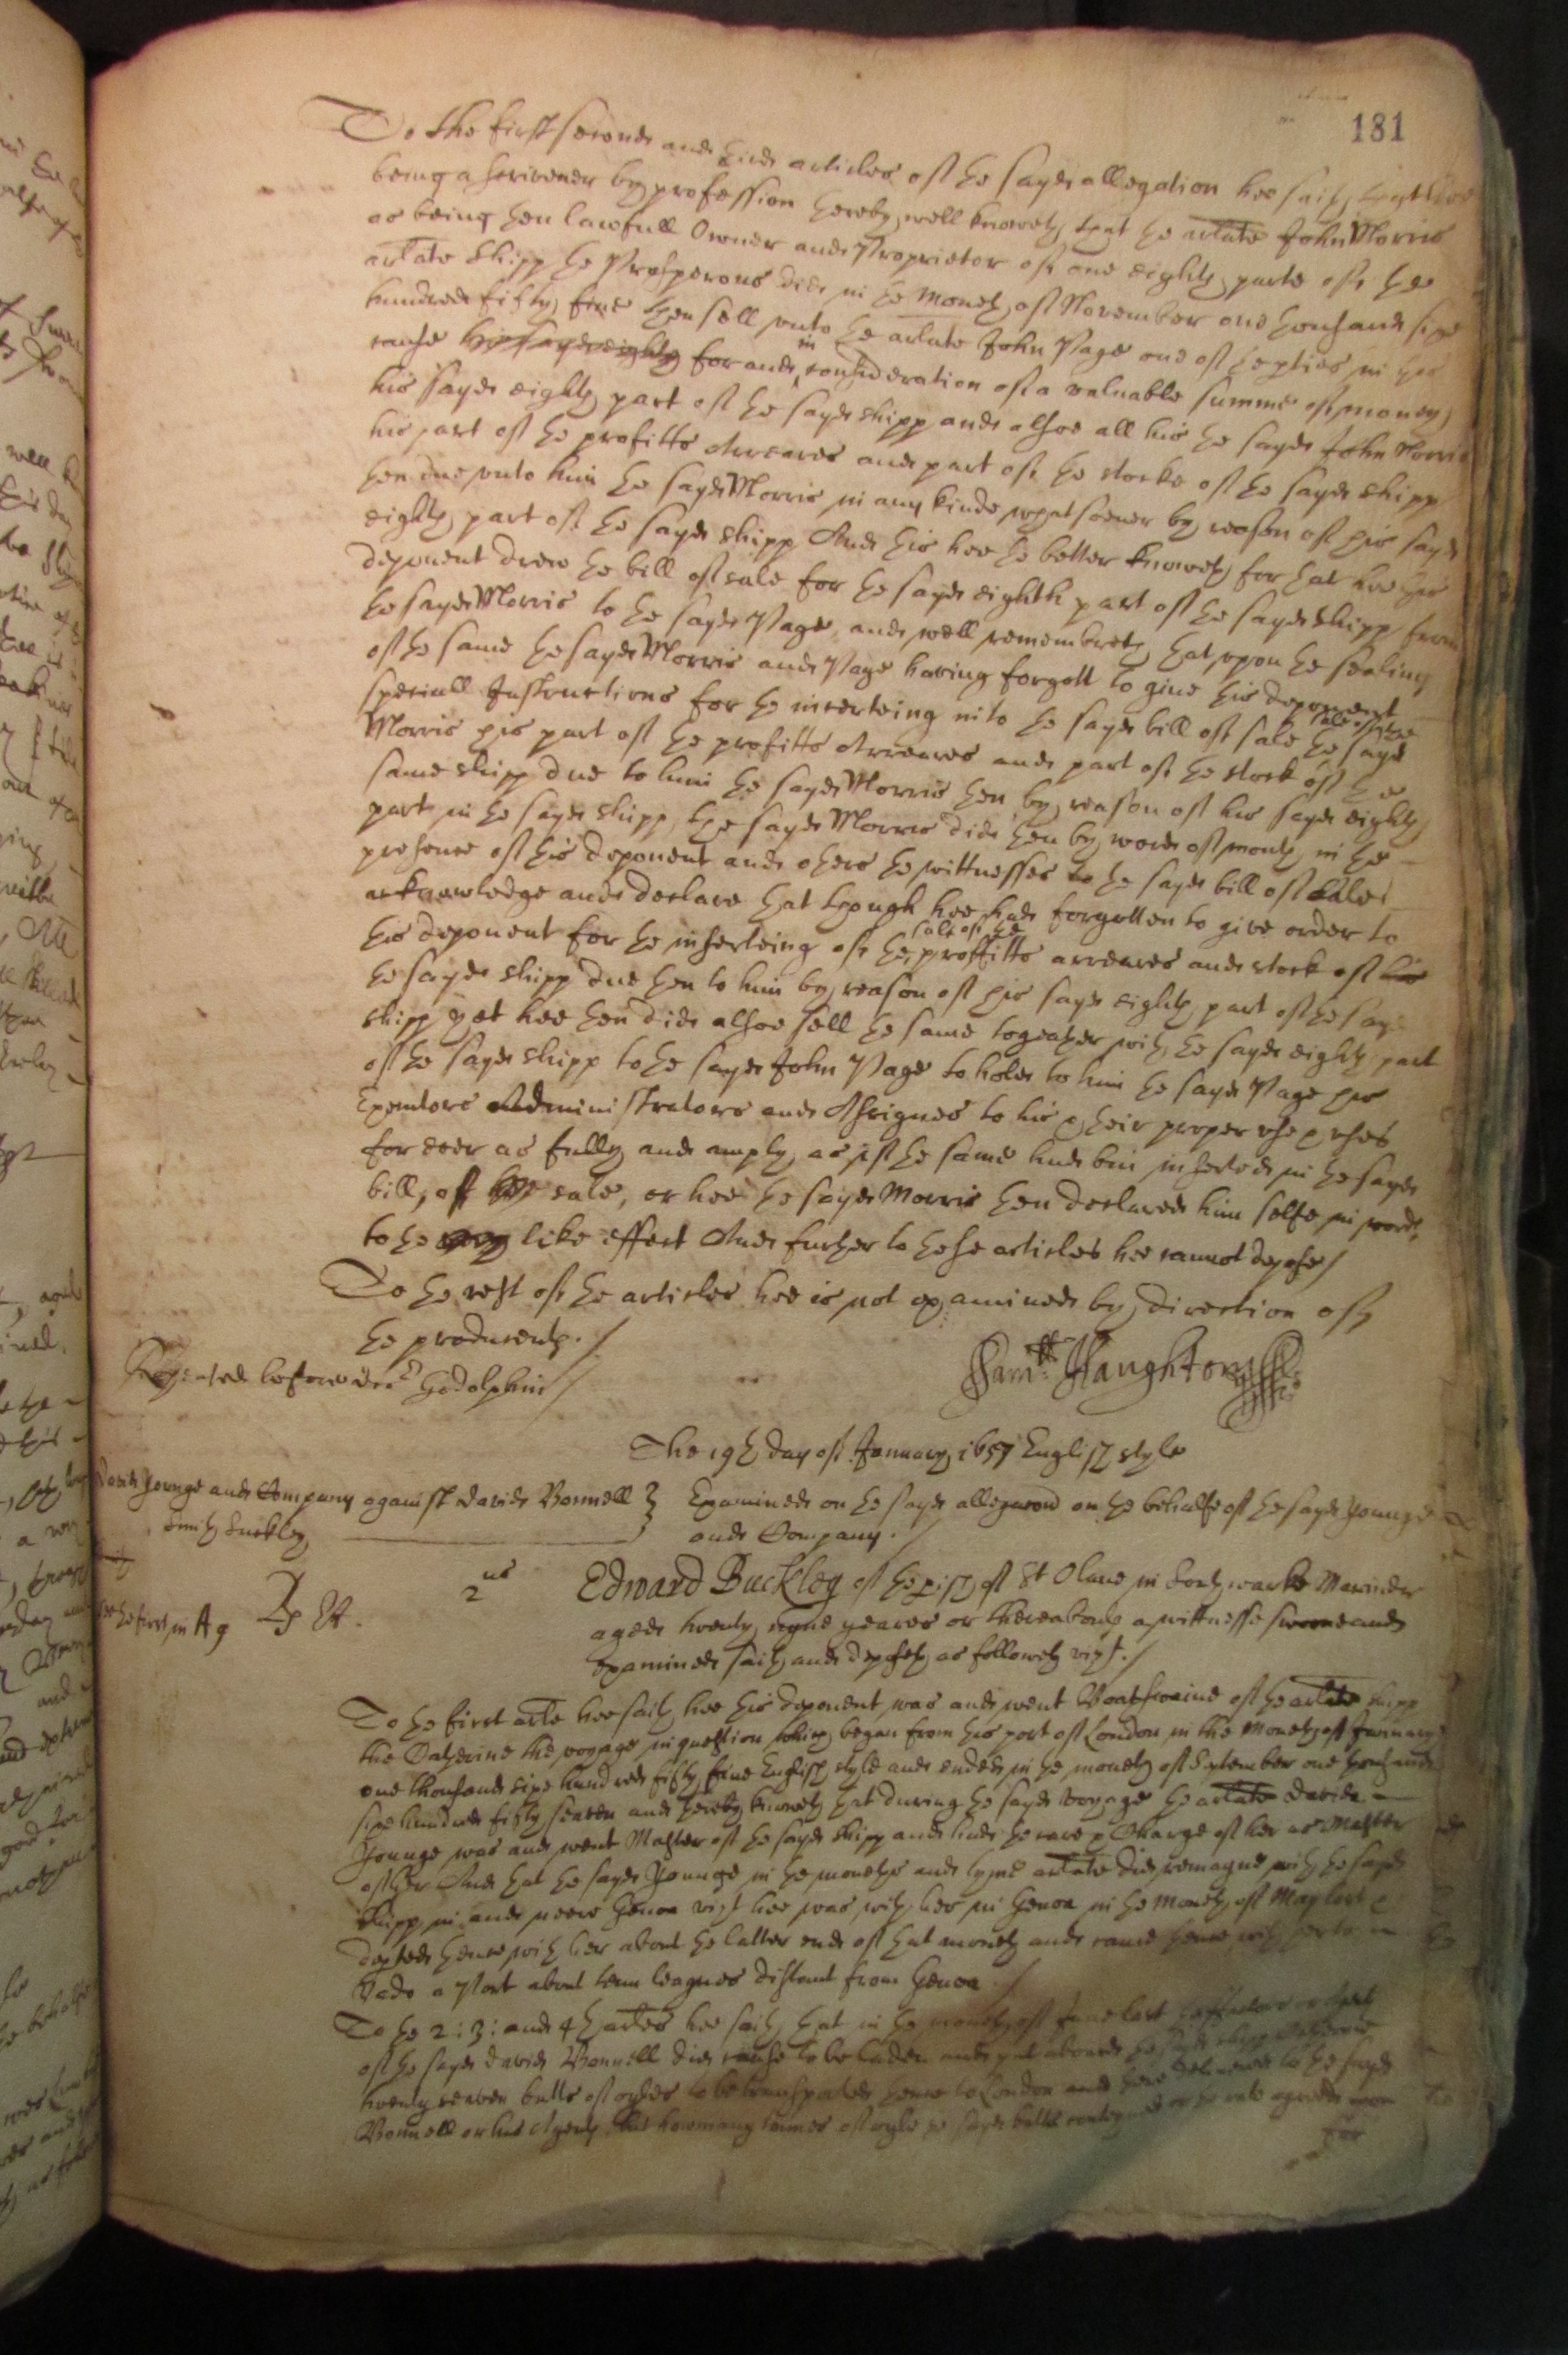 181
To the first second and third articles of the sayd allegation hee saith that hee
being a scrivener by profession thereby well knoweth that the arlate John Morris
as being then lawfull Owner and Proprietor of one eighth parte of the
arlate shipp the Prosperous did in the moneth of November one thousand six
hundred fifty five then sell unto the arlate John Page one of the pties in this
cause his sayd eighth for and in consideration of a valuable summe of money
his sayd eighth part of the sayd shipp and alsoe all his the sayd John Morris
his part of the profitts Arreares and part of the stocke of the sayd shipp
then due unto him the sayd Morris in any kinde whatsoever by reason of his sayd
eighth part of the sayd shipp And this hee the better knoweth for that hee this
deponent drew the bill of sale for the sayd eighth part of the sayd shipp from
the sayd Morris to the sayd Page and well remembreth that upon the sealing
of the same the sayd Morris and Page having forgott to give this deponent
speciall Instructions for the inserteing into the sayd bill of sale the sayd
sale of the
Morris his part of the profitts Arreares and part of the stock of the
same shipp due to him the sayd Morris then by reason of his sayd eighth
part in the sayd shipp, the sayd Morris did then by word of mouth in the
presence of this deponent and others the wittnesses to the sayd bill of sale
acknowledge and declare that though hee had forgotten to give order to
this deponent for the inserteing of the sale of the proffitts arreares and stock of his
the sayd shipp due then to him by reason of his sayd eighth part of the sayd
shipp yet hee then did alsoe sell the same togeather with the sayd eighth part
of the sayd shipp to the sayd John Page to hold to him the sayd Page his
Executors Administrators and Assignes to his & their proper use & uses
for ever as fully and amply as if the same had bin inserted in the sayd
bill of the sale, or hee the sayd Morris then declared him selfe in words
to the very like effect And further to these articles hee cannot depose/
To the rest of the articles hee is not examined by direction of
the producents./
Repeated before doctr Godolphin/
Sam: Haughton
The 19th day of January 1657 English style
David Younge and Company against David Bonnell } Examined on the sayd allegacon on the behalfe of the sayd Younge
Smith Suckley
and Company./
2us
Edward Buckley of the pish of St Olave in Southwarke Mariner
the first in A 9
Dp Et.
aged twenty nyne yeares or thereabouts a wittnesse sworne and
examined saith and deposeth as followeth vizt./
To the first arle hee saith hee this deponent was and went Boatswaine of the arlate shipp
the Catherine the voyage in question which began from this port of London in the moneth of January
one thousand six hundred fifty five English style and ended in the moneth of September one thousand
six hundred fifty seaven and thereby knoweth that during the sayd voyage the arlate David
Younge was and went Master of the sayd shipp and had the care & Charge of her as Master
of her And that the sayd Younge in the moneths and tyme arlate did remayne with the sayd
shipp in and neere Genoa vizt hee was with her in Genoa in the moneth of May last &
depted thence with her about the latter end of that moneth and came thence with her to
Vado a Port about tenn leagues distant from Genoa./
To the 2: 3: and 4th arles hee saith that in the moneth of June last the ffactors or Agents
of the sayd David Bonnell did cause to be laden and put aboard the sayd shipp Catherine
twenty seaven butts of oyles to be transported thence to London and there delivered to the sayd
Bonnell or his Agents But how many tonnes of oyle the sayd butts conteyned or the rate agreed upon
for